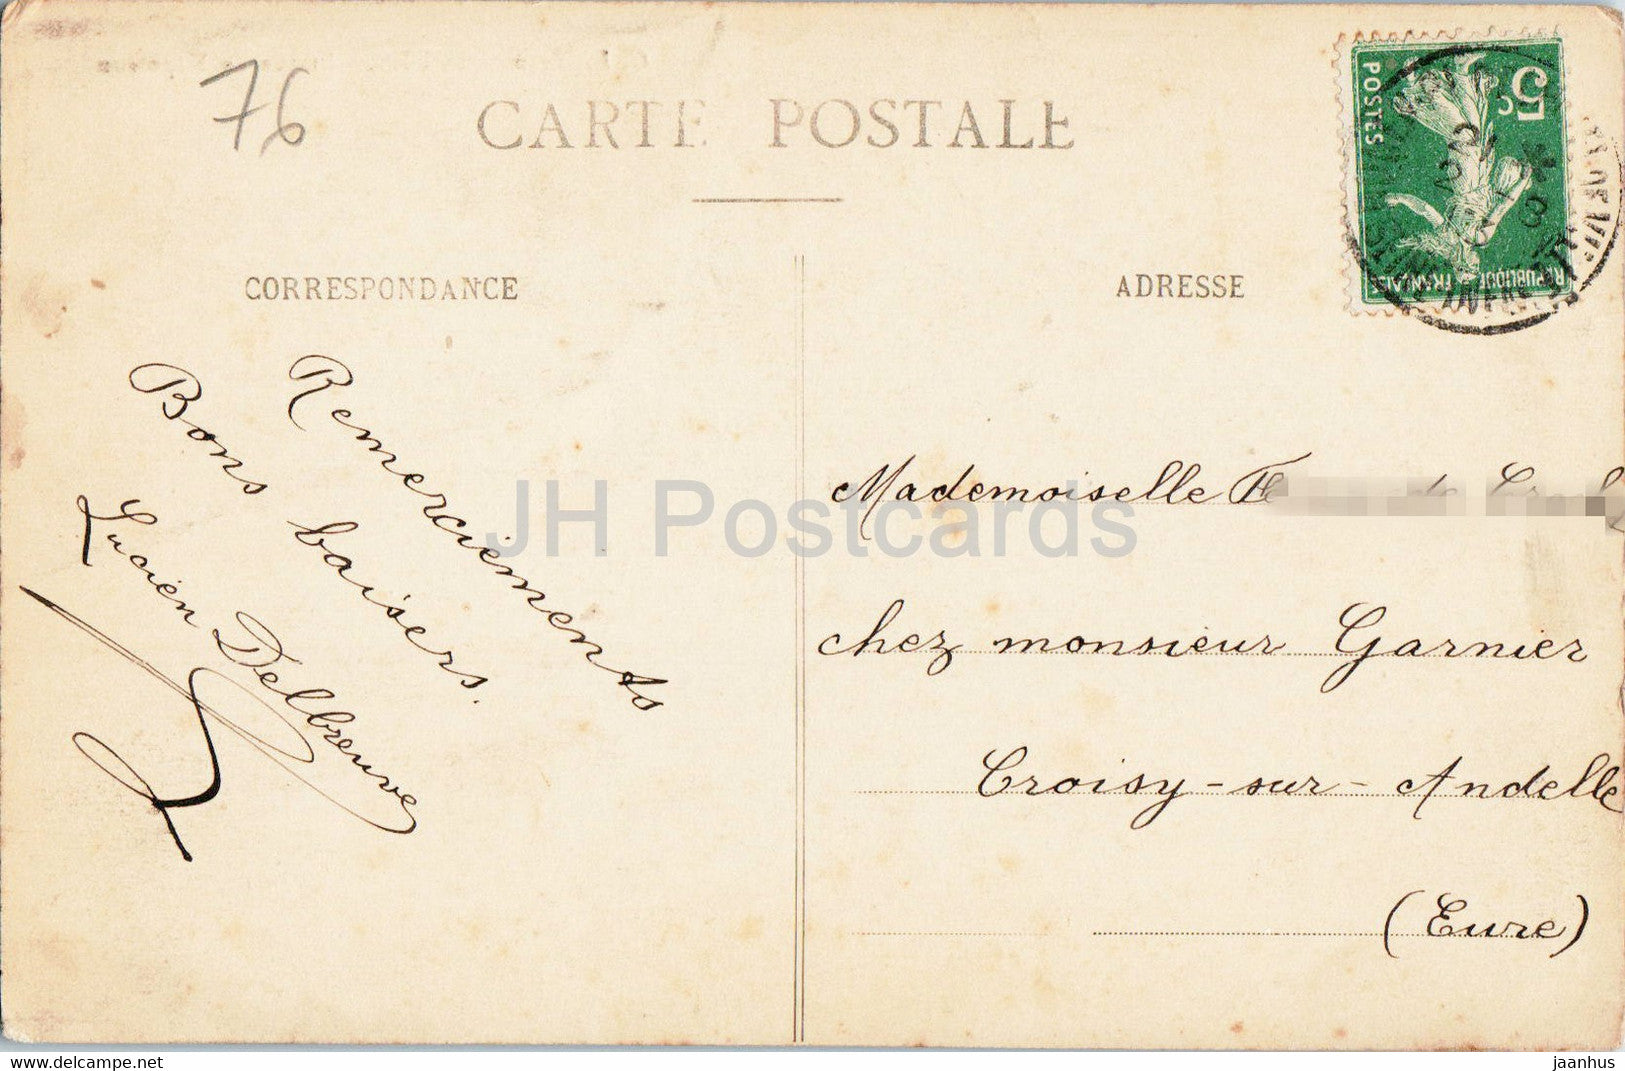 76
CARTE POSTALE
5c
POSTES
REPUBLIQUE FRANÇAISE
CORRESPONDANCE
ADRESSE
Remerciements
Bons baisers.
Lucien Delbreuve
Mademoiselle
chez monsieur Garnier
Croisy-sur-Andelle
(Eure)
JH Postcards
www.delcampe.net
jaanhus